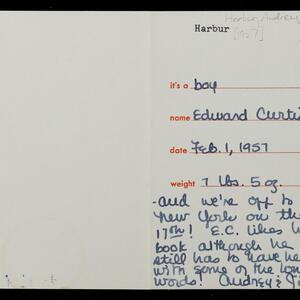 Harbur, Audrey
Harbur [1957]
it's a boy
name Edward Curtis
date Feb. 1, 1957
weight 7 lbs. 5 oz.
-and we're off to
New York on the
17th! E.C. likes
book although he
still has to have he
with some of the
words! Audrey &